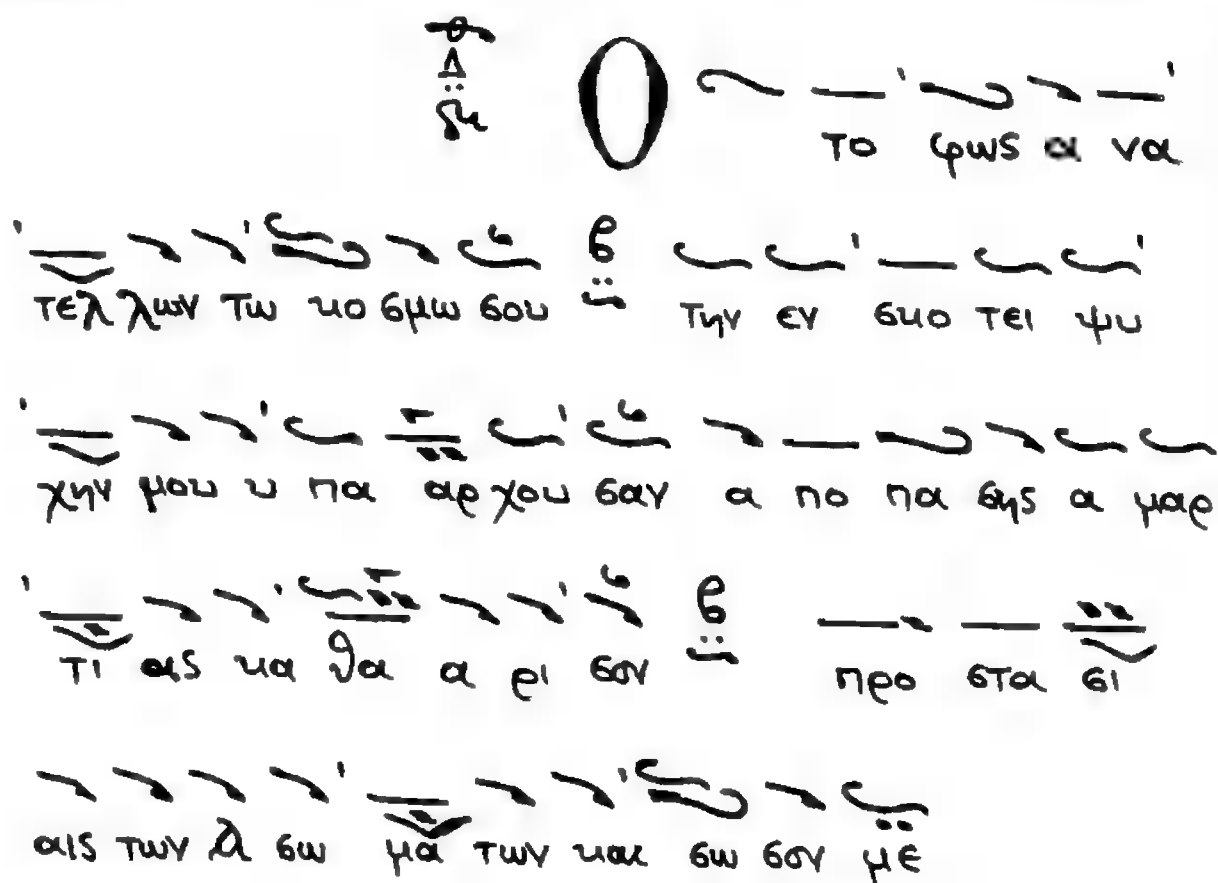 Ο το φως α να
τελ λων τω κο σμω σου την εν σκο τει ψυ
χην μου υ πα αρ χου σαν α πο πα σης α μαρ
τι αις κα θα α ρι σον προ στα σι
αις των Α σω μα των και σω σον με